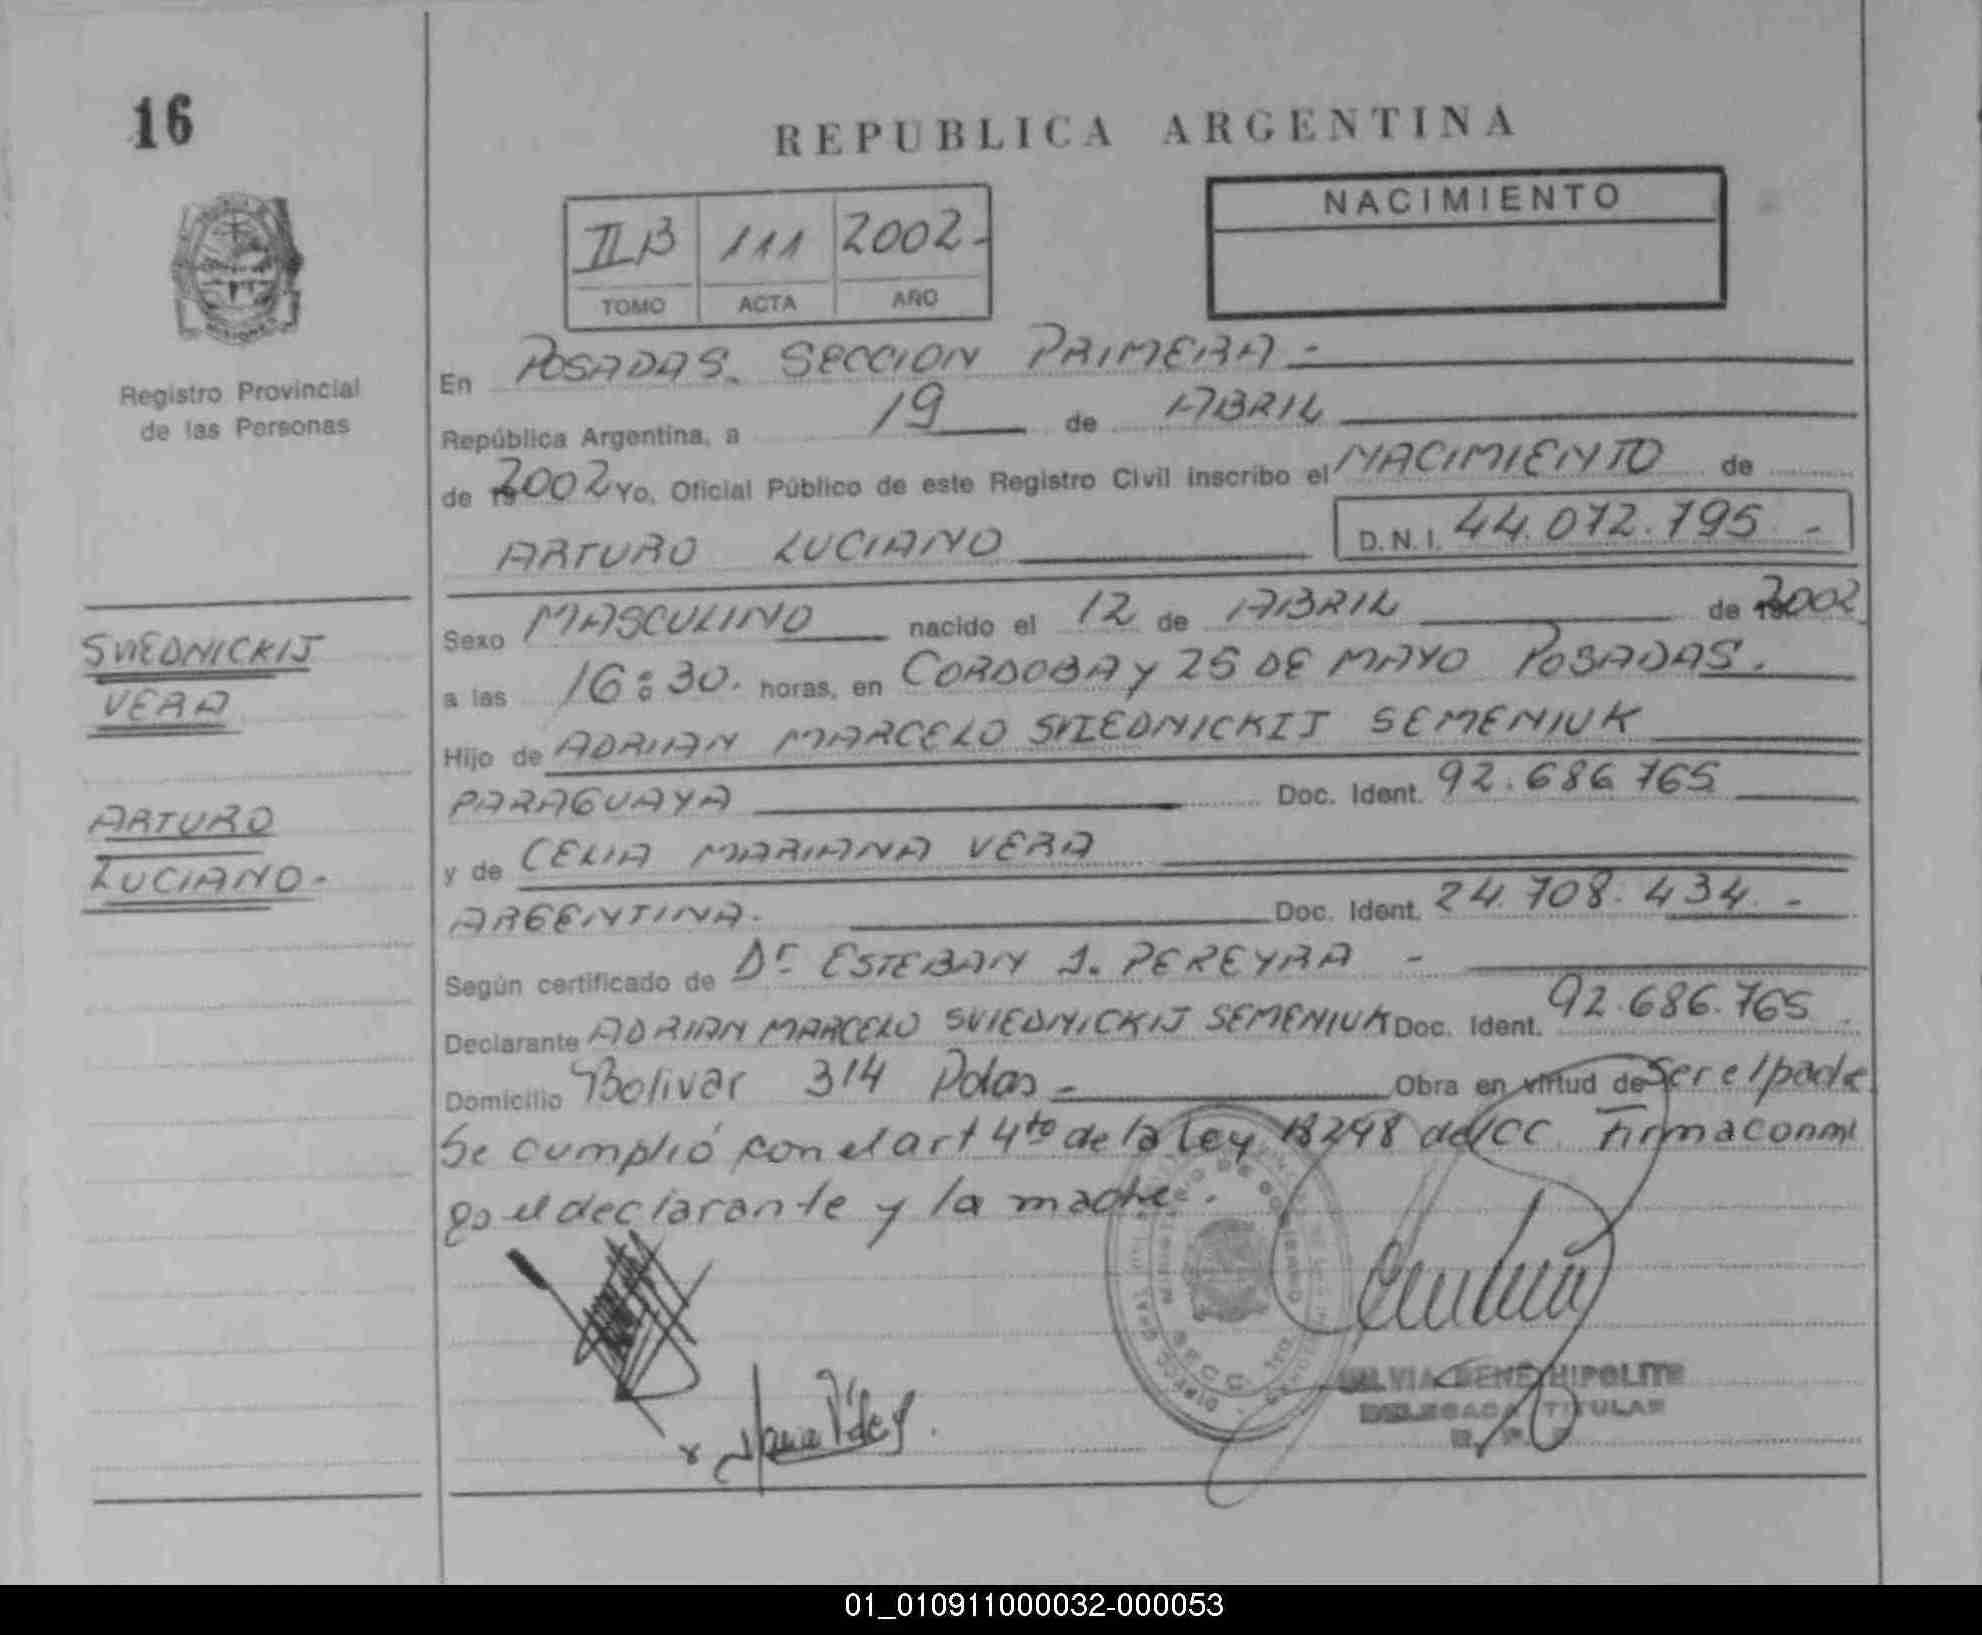 16
REPUBLICA ARGENTINA
NACIMIENTO
IIB 111 2002-
TOMO ACTA AÑO
Registro Provincial
de las Personas
En POSADAS. SECCION PRIMERA -
República Argentina, a 19 de ABRIL
de 2002 Yo, Oficial Público de este Registro Civil inscribo el NACIMIENTO de
ARTURO LUCIANO D.N.I. 44.072.795 -
SVIEDNICKIJ
VERA
ARTURO
LUCIANO-
Sexo MASCULINO nacido el 12 de ABRIL de 2002
a las 16:30. horas, en CORDOBA Y 25 DE MAYO POSADAS.
Hijo de ADRIAN MARCELO SVIEDNICKIJ SEMENIUK
PARAGUAYA Doc. Ident. 92.686 765
y de CELIA MARIANA VERA
ARGENTINA. Doc. Ident. 24.708.434. -
Según certificado de Dr ESTEBAN J. PEREYRA -
Declarante ADRIAN MARCELO SVIEDNICKIJ SEMENIUK Doc. Ident. 92.686.765
Domicilio Bolivar 314 Pdas - Obra en virtud de Ser el padre
Se cumplió con el art 4to de la Ley 18248 del CC. Firma conmi
go el declarante y la madre.
HIPOLITO
TITULAR
01_010911000032-000053